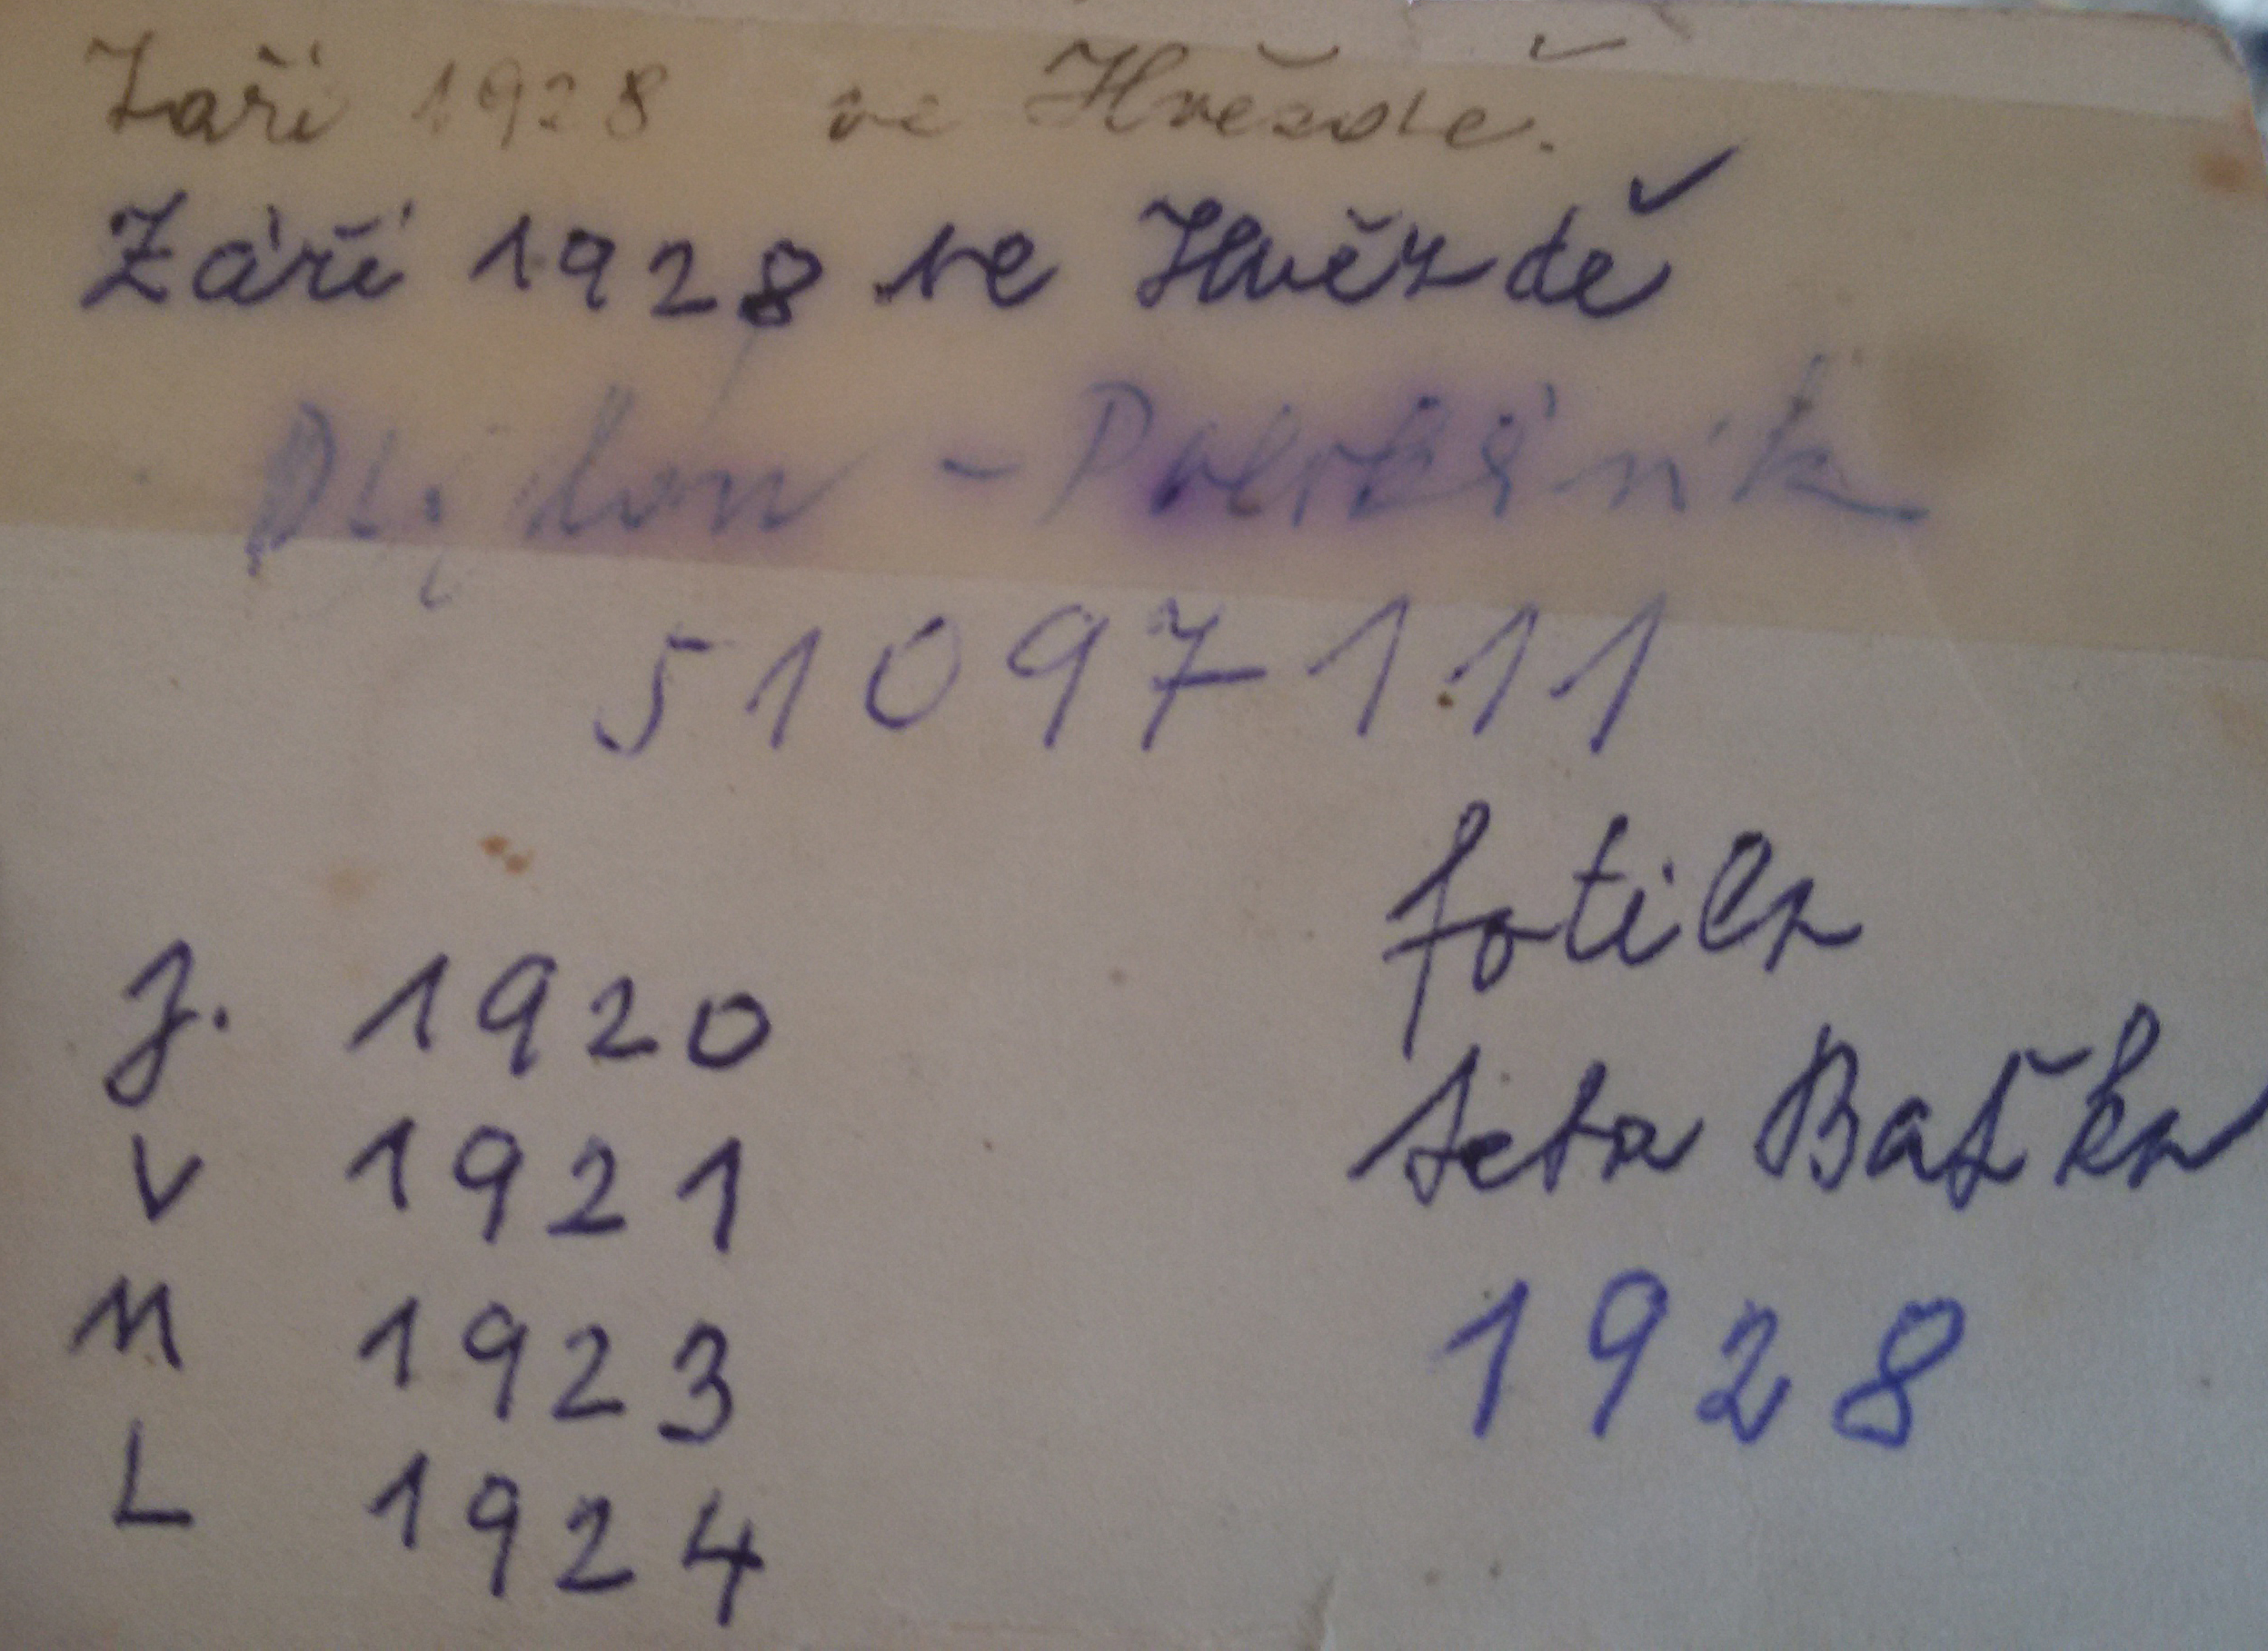 Září 1928 ve Hvězdě.
Září 1928 ve Hvězdě
-
51097111
fotila
teta Baťka
J. 1920
V 1921
M 1923
L 1924
1928